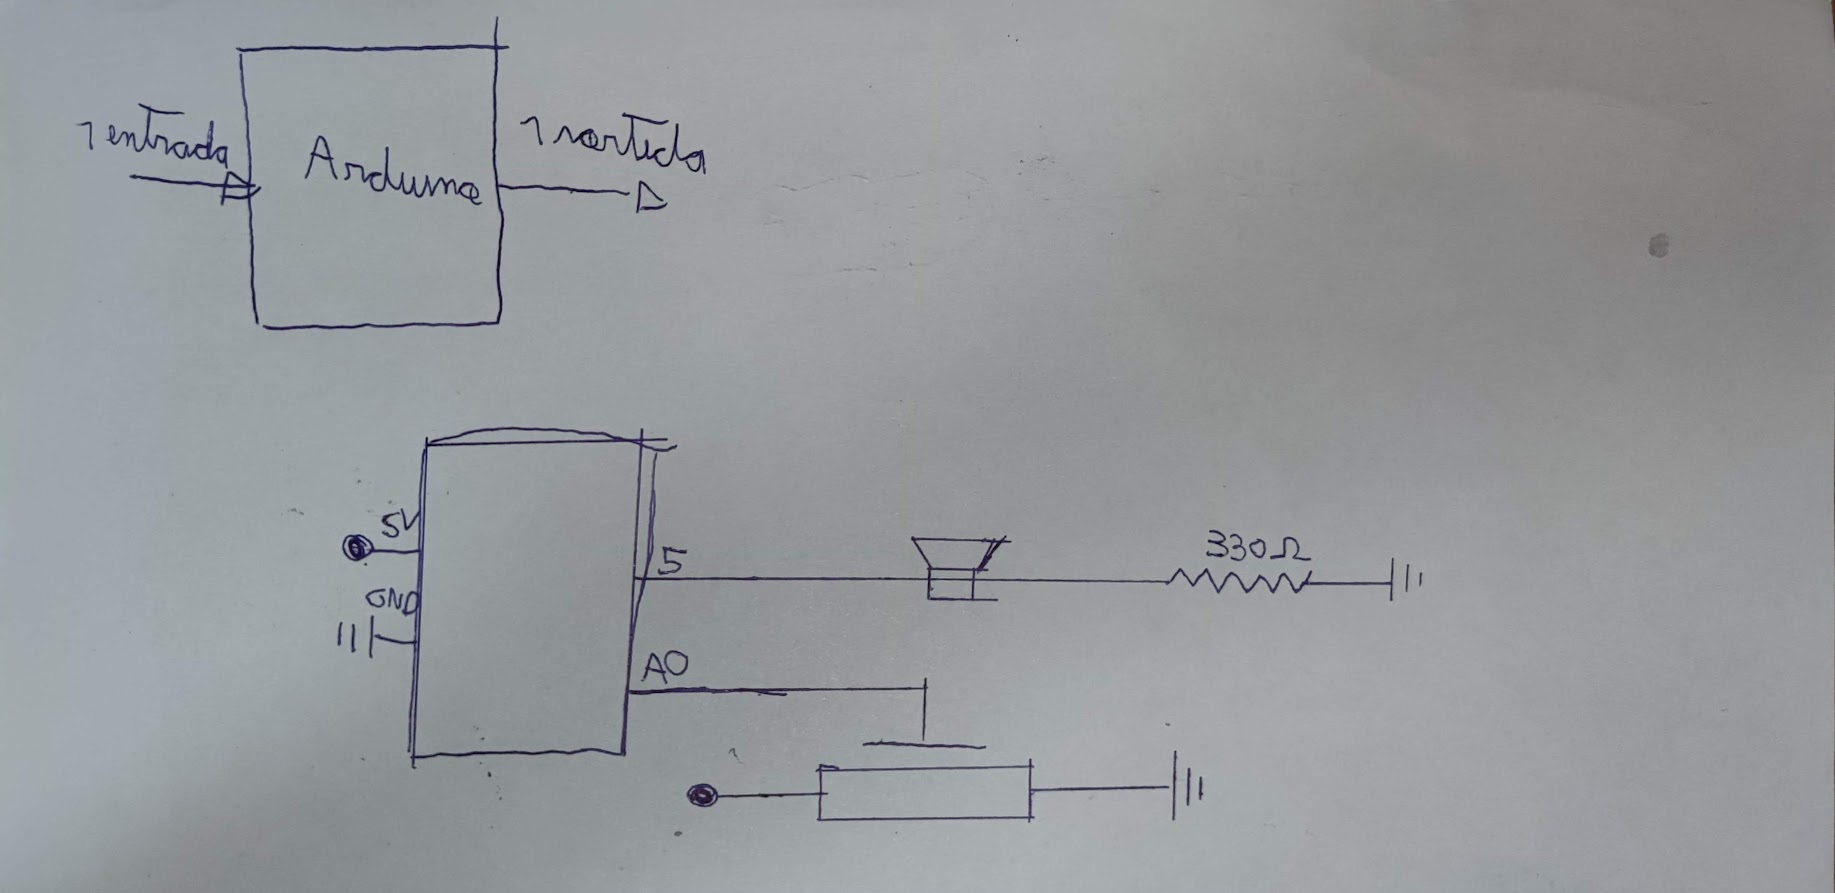 1 entrada
Arduino
1 sortida
5V
GND
5
A0
330Ω